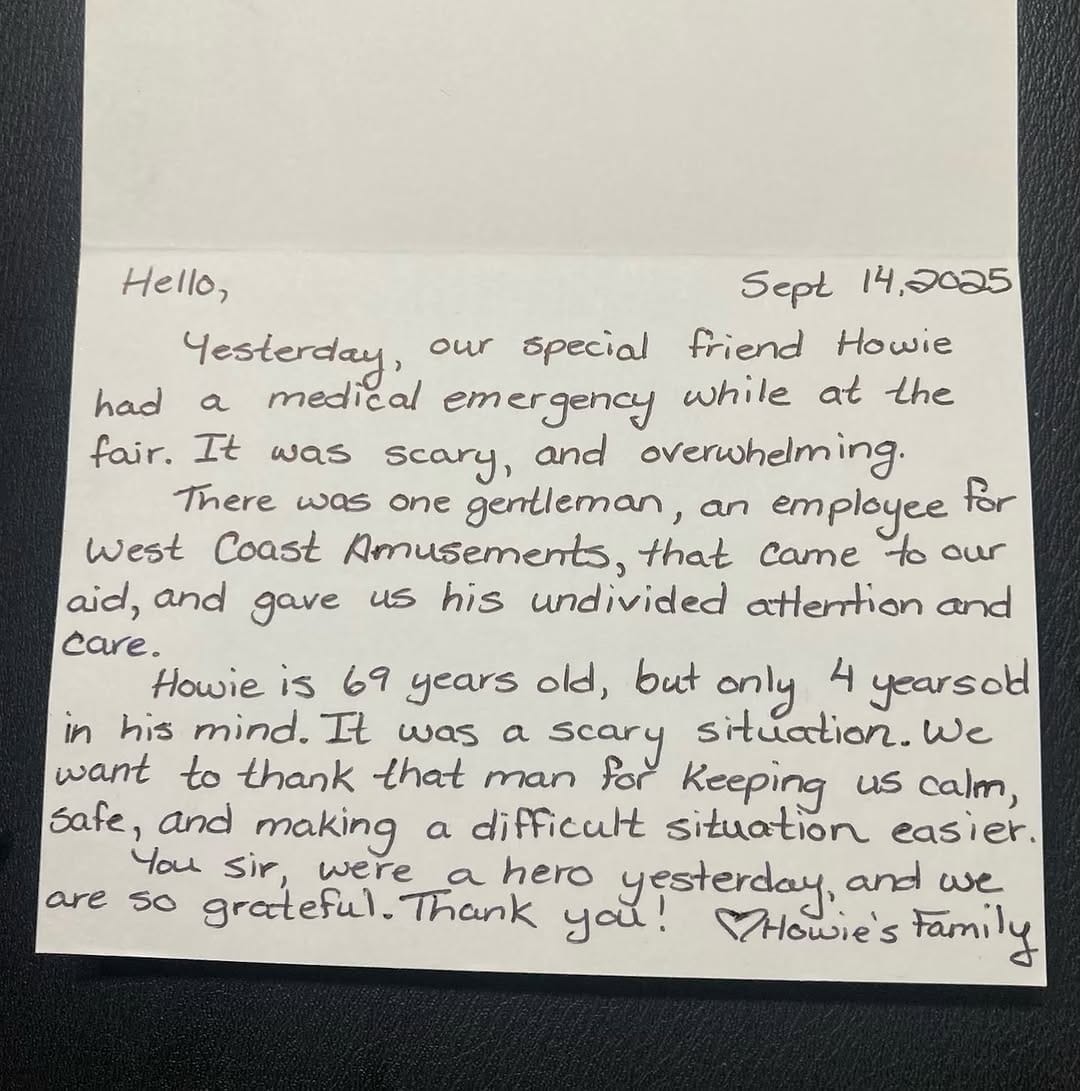 Hello,
Sept 14, 2025
Yesterday, our special friend Howie
had a medical emergency while at the
fair. It was scary, and overwhelming.
There was one gentleman, an employee for
West Coast Amusements, that came to our
aid, and gave us his undivided attention and
care.
Howie is 69 years old, but only 4 years old
in his mind. It was a scary situation. We
want to thank that man for keeping us calm,
safe, and making a difficult situation easier.
You sir, were a hero yesterday, and we
are so grateful. Thank you! ♡Howie's Family